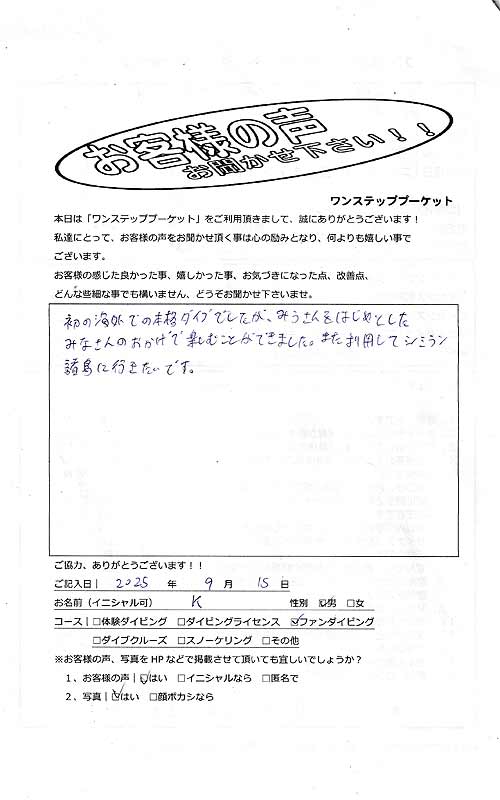 お客様の声
お聞かせ下さい！！
ワンステッププーケット
本日は「ワンステッププーケット」をご利用頂きまして、誠にありがとうございます！
私達にとって、お客様の声をお聞かせ頂く事は心の励みとなり、何よりも嬉しい事で
ございます。
お客様の感じた良かった事、嬉しかった事、お気づきになった点、改善点、
どんな些細な事でも構いません、どうぞお聞かせ下さいませ。
初の海外での本格ダイブでしたが、みうさんをはじめとした
みなさんのおかげで楽しむことができました。また利用してシミラン
諸島に行きたいです。
ご協力、ありがとうございます！！
ご記入日| 2025 年 9 月 15 日
お名前（イニシャル可） K 性別 ☑男 □女
コース|□体験ダイビング □ダイビングライセンス ☑ファンダイビング
□ダイブクルーズ □スノーケリング □その他
※お客様の声、写真を HP などで掲載させて頂いても宜しいでしょうか？
１、お客様の声|☑はい □イニシャルなら □匿名で
２、写真|☑はい □顔ボカシなら